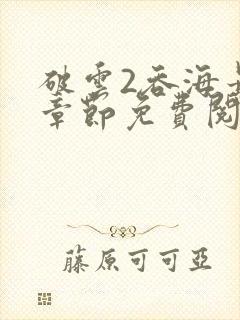 破雲2吞海
章節免費閱
藤原可可亞